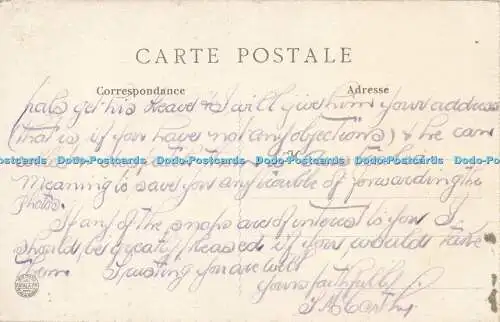 CARTE POSTALE
Correspondance
Adresse
pals get his leave & I will give him your address
(that is, if you have not any objections) & he can
Meaning to save you any trouble of forwarding the
Photos.
If any of the snaps are of interest to you I
should be greatly pleased if you would take
them. Trusting you are well
Yours faithfully
Dodo-Postcards Dodo-Postcards Dodo-Postcards Dodo-Postcards Dodo-Postcards Dodo-Postcards